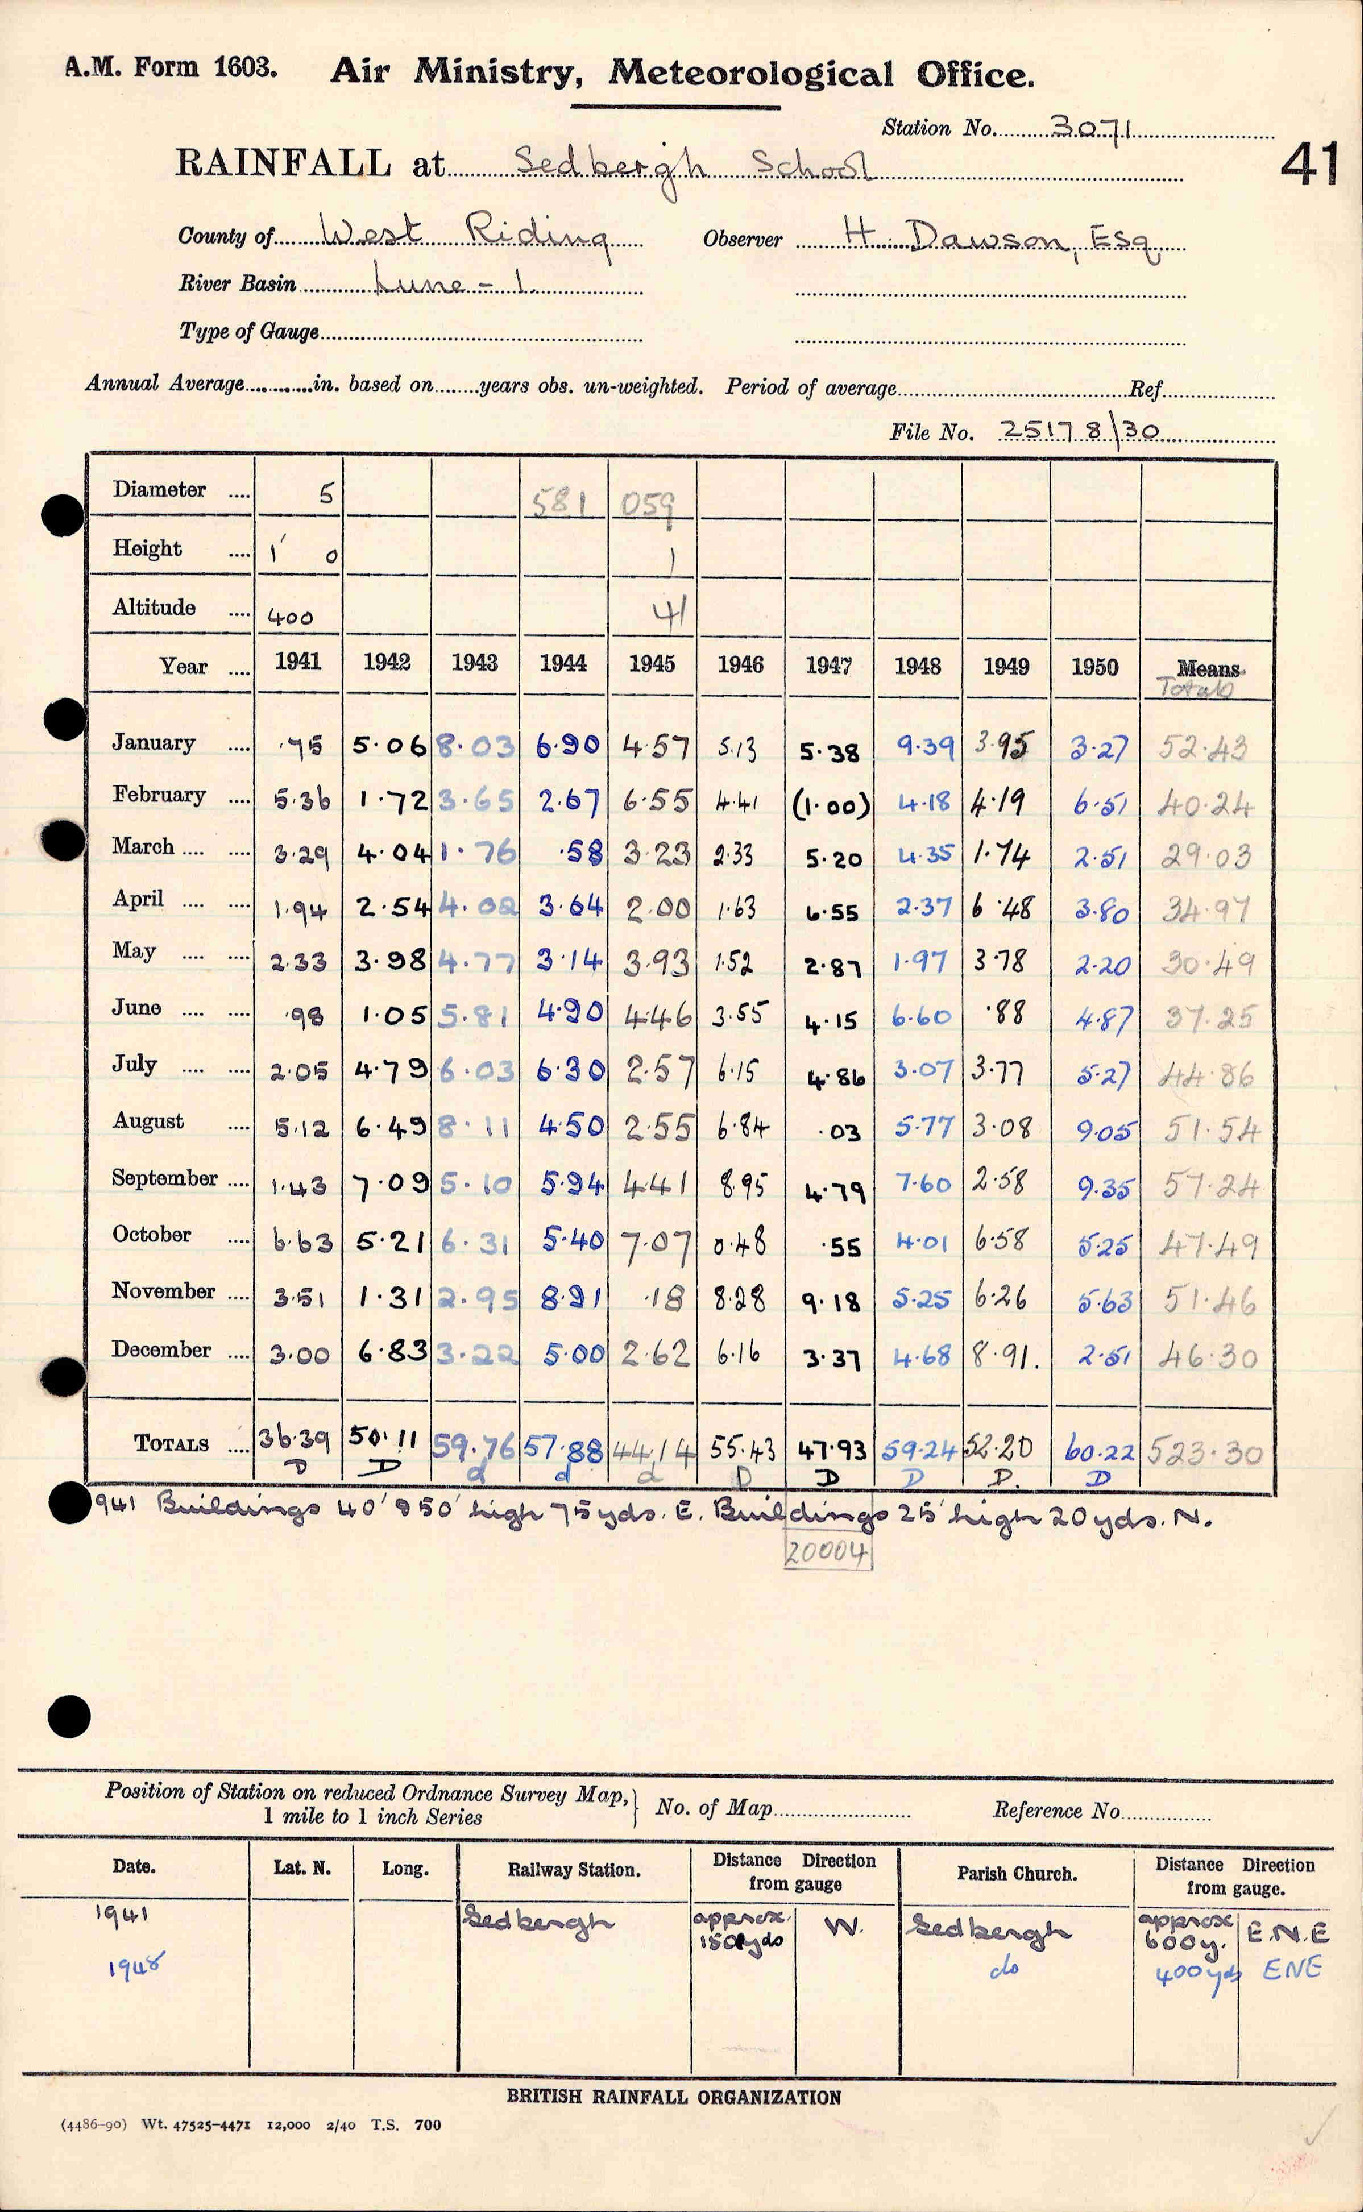 A.M. Form 1603. Air Ministry, Meteorological Office.
Station No. 3071
41
RAINFALL at Sedbergh School
County of West Riding Observer H. Dawson, Esq.
River Basin Lune - 1
Type of Gauge
Annual Average in. based on years obs. un-weighted. Period of average Ref.
File No. 25178/30
Diameter .... 5 581 059
Height .... 1' 0 1
Altitude .... 400 41
Year .... 1941 1942 1943 1944 1945 1946 1947 1948 1949 1950 Means
Totals
January .... .75 5.06 8.03 6.90 4.57 5.13 5.38 9.39 3.95 3.27 52.43
February .... 5.36 1.72 3.65 2.67 6.55 4.41 (1.00) 4.18 4.19 6.51 40.24
March .... .... 3.29 4.04 1.76 .58 3.23 2.33 5.20 4.35 1.74 2.51 29.03
April .... .... 1.94 2.54 4.02 3.64 2.00 1.63 6.55 2.37 6.48 3.80 34.97
May .... .... 2.33 3.98 4.77 3.14 3.93 1.52 2.87 1.97 3.78 2.20 30.49
June .... .... .98 1.05 5.81 4.90 4.46 3.55 4.15 6.60 .88 4.87 37.25
July .... .... 2.05 4.79 6.03 6.30 2.57 6.15 4.86 3.07 3.77 5.27 44.86
August .... 5.12 6.49 8.11 4.50 2.55 6.84 .03 5.77 3.08 9.05 51.54
September .... 1.43 7.09 5.10 5.94 4.41 8.95 4.79 7.60 2.58 9.35 57.24
October .... 6.63 5.21 6.31 5.40 7.07 0.48 .55 4.01 6.58 5.25 47.49
November .... 3.51 1.31 2.95 8.91 .18 8.28 9.18 5.25 6.26 5.63 51.46
December .... 3.00 6.83 3.22 5.00 2.62 6.16 3.37 4.68 8.91. 2.51 46.30
TOTALS .... 36.39 50.11 59.76 57.88 44.14 55.43 47.93 59.24 52.20 60.22 523.30
D D d d d D D D D. D
1941 Buildings 40' & 50' high 75 yds. E. Buildings 25' high 20 yds. N.
20004
Position of Station on reduced Ordnance Survey Map,
1 mile to 1 inch Series
No. of Map Reference No.
Date. Lat. N. Long. Railway Station. Distance Direction from gauge Parish Church. Distance Direction from gauge.
1941 Sedbergh approx. 150 yds W. Sedbergh approx 600 y. E.N.E
1948 do 400 yds ENE
BRITISH RAINFALL ORGANIZATION
(4486-90) Wt. 47525-4471 12,000 2/40 T.S. 700